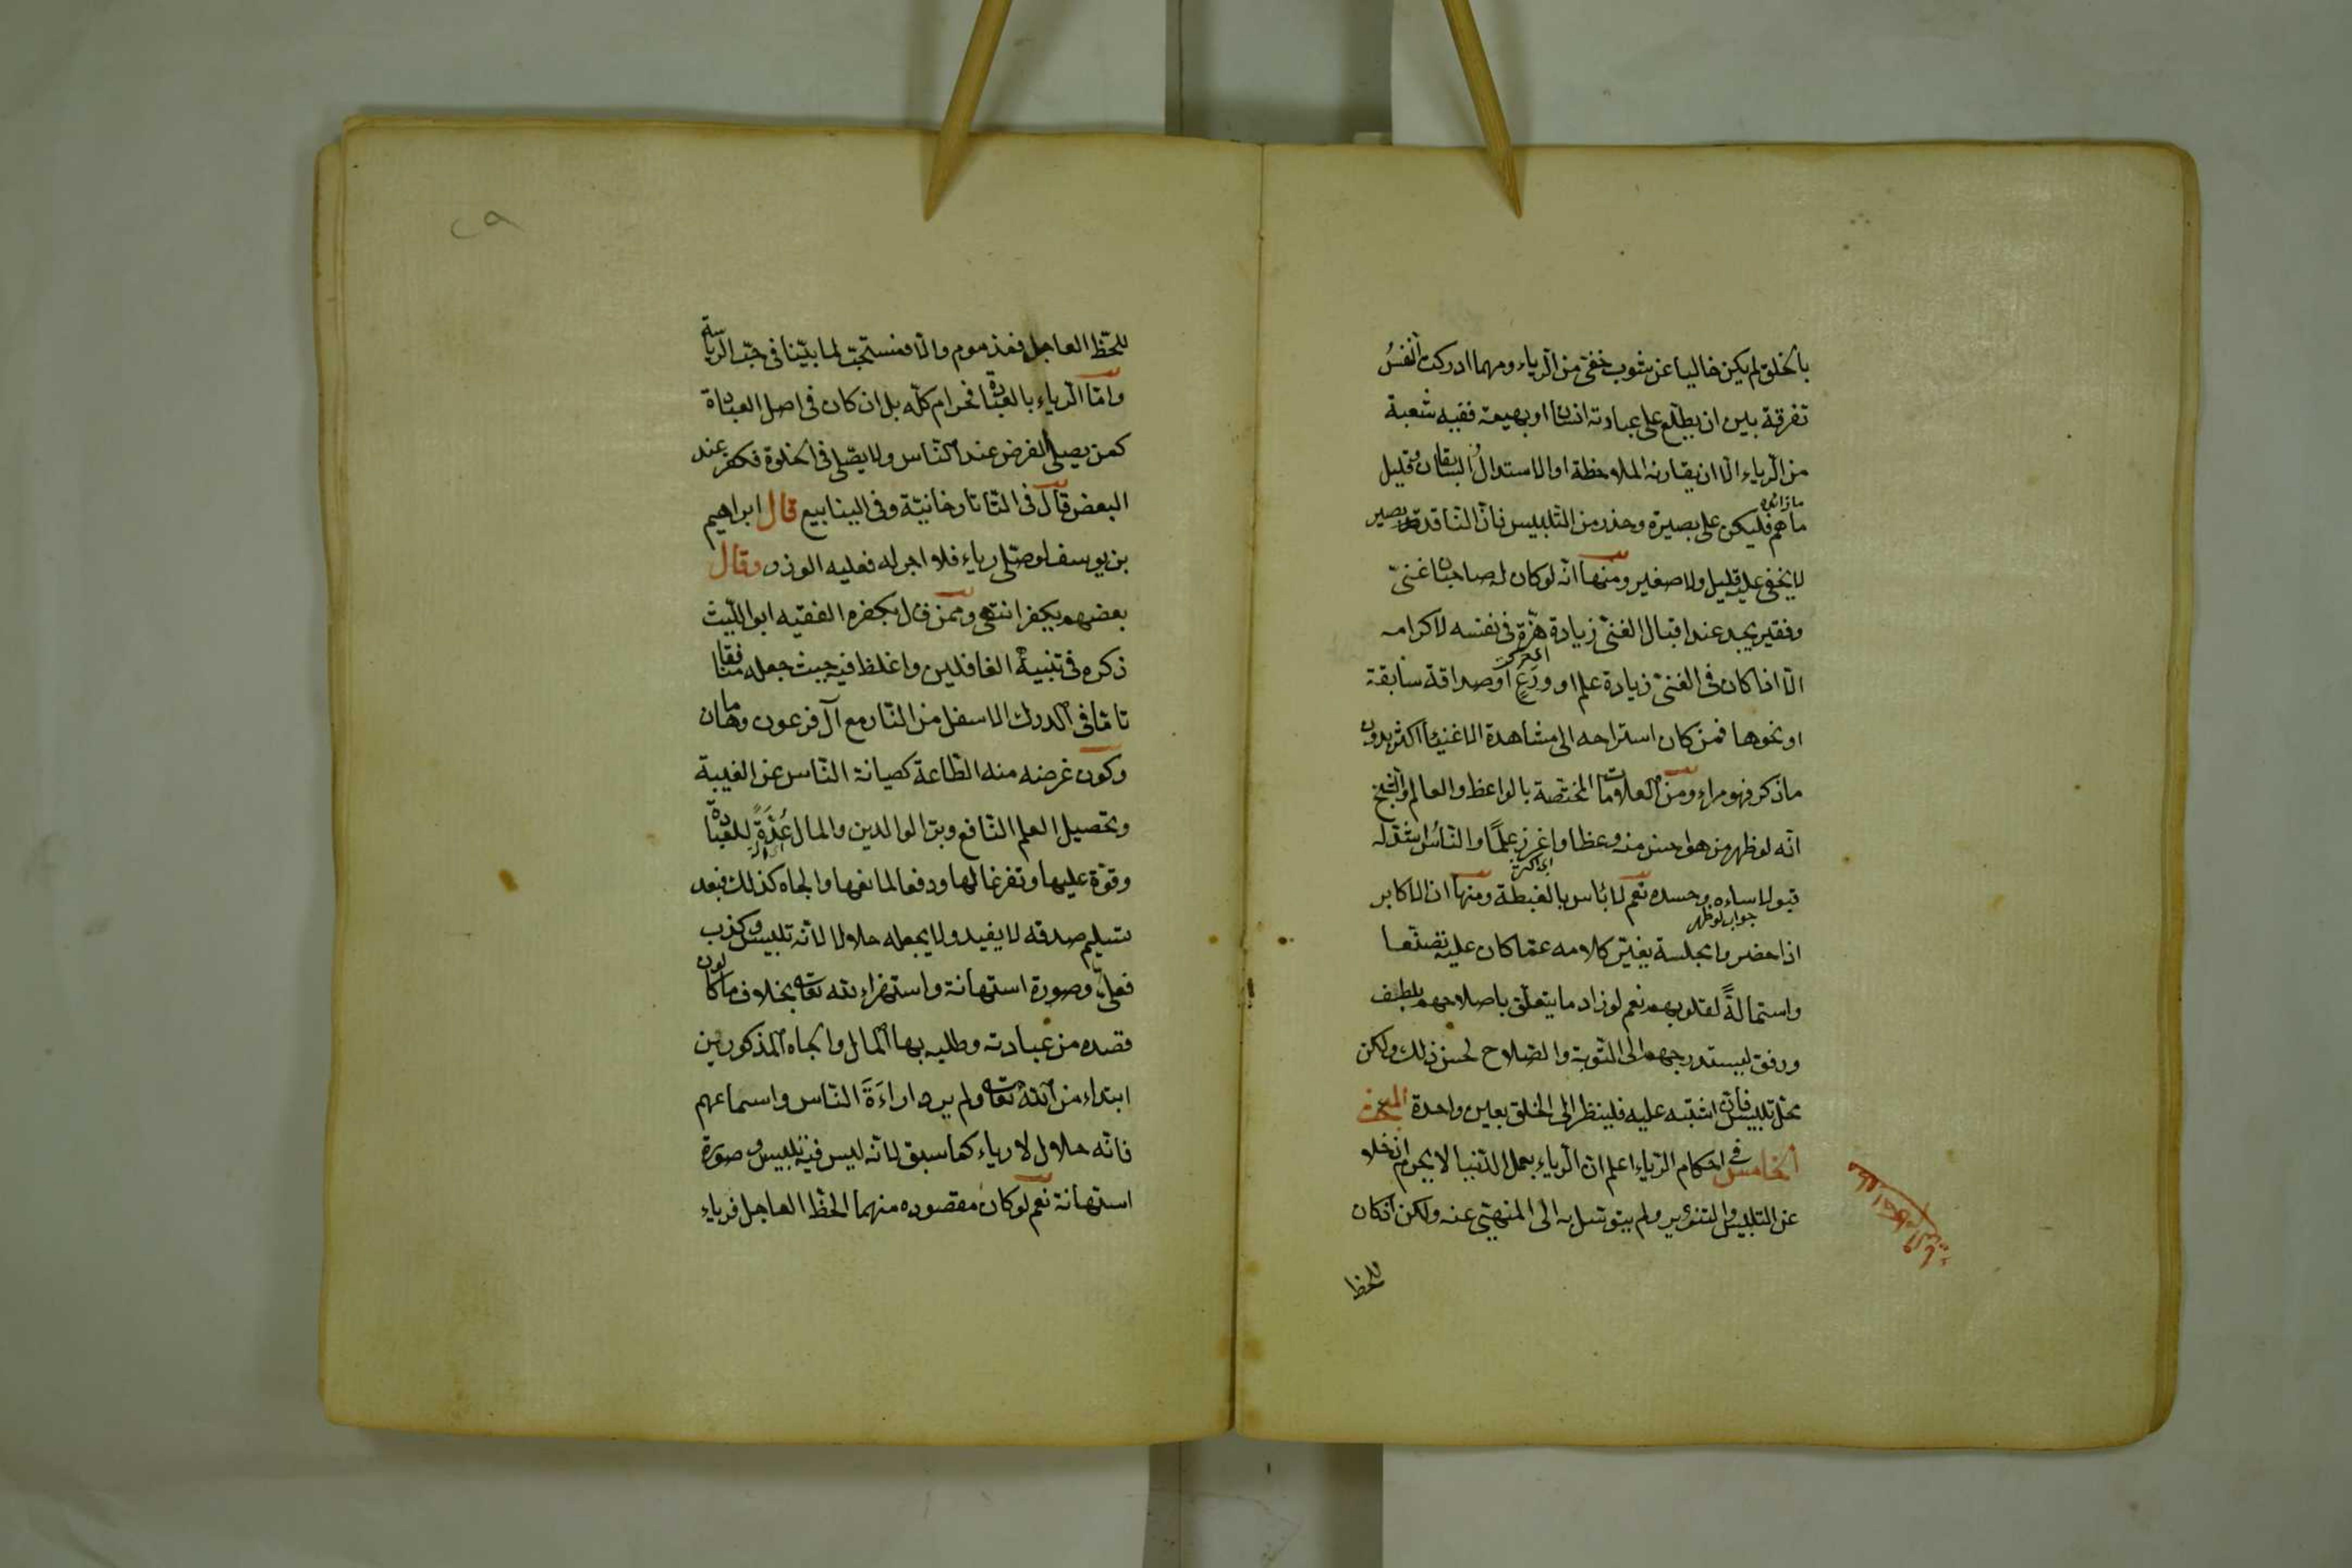 بالخلق لم يكن خاليا عن شوب خفى من الرياء ومهما ادركت النفسُ
تفرقة بين ان يطلع على عبادته انسانا او بهيمة ففيه شعبة
من الرياء الا ان يقارنه الملاحظة او الاستدلالُ السابقان وقليل
ما زائده
ما هم فليكن على بصيرة وحذر من التلبيس فان الناقد بصير
لا يخفى عليه قليل ولا صغير ومنها انه لو كان له صاحبان غنىّ
وفقير يجد عند اقبال الغنى زيادة هزّة فى نفسه لاكرامه
اى حركت
الا اذا كان فى الغنى زيادة علم او ورعٍ او صداقة سابقة
او نحوها فمن كان استراحه الى مشاهدة الاغنياء اكثر بدون
ما ذكر فهو مراء ومن العلامات المختصة بالواعظ والعالم والشيخ
انه لو ظهر من هو احسن منه وعظا واغزر علمًا والناس اشد له
اى اكثر
قبولا ساءه وحسده نعم لا بأس بالغبطة ومنها ان الاكابر
جواب لو ظهر
اذا حضروا مجلسه يغيّر كلامه عما كان عليه تصنّعا
واستمالةً لقلوبهم نعم لو زاد ما يتعلّق باصلاحهم بلطف
ورفق ليستدرجهم الى التوبة والصلاح لحسن ذلك ولكن
محل تلبيس فان اشتبه عليه فلينظر الى الخلق بعين واحدة المبحث
الخامس فى احكام الرياء اعلم ان الرياء بعمل الدنيا لا يحرم ان خلا
عن التلبيس والتزوير ولم يتوسّل به الى المنهى عنه ولكن ان كان
للحظ
٢٩
للحظ العاجل فمذموم والا فمستحبّ لما بيّنا فى حبّ الرياسة
وامّا الرياء بالعبادة فحرام كلّه بل ان كان فى اصل العبادة
كمن يصلى الفرض عند الناس ولا يصلى فى الخلوة فكفر عند
البعض قال فى التاتارخانية وفى الينابيع قال ابراهيم
بن يوسف لو صلى رياء فلا اجر له فعليه الوزر وقال
بعضهم يكفر انتهى وممن قال بكفره الفقيه ابو الليث
ذكره فى تنبيه الغافلين واغلظ فيه حيث جعله منافقا
تامّا فى الدرك الاسفل من النار مع آل فرعون وهامان
وكون غرضه منه الطاعة كصيانة الناس عن الغيبة
وتحصيل العلم النافع وبرّ الوالدين والمال عُدّةً للعبادة
وقوّة عليها وتفرغا لها ودفعا لمانعها والجاه كذلك فبعد
تسليم صدقه لا يفيد ولا يجعله حلالا لانه تلبيس وكذب
فعلىّ وصورة استهانة واستهزاء لله تعالى بخلاف ما كا لون
قصده من عبادته وطلبه بها المال والجاه المذكورين
ابتداء من الله تعالى ولم يرد اراءَةَ الناس واسماعهم
فانه حلال لا رياء كما سبق لانه ليس فيه تلبيس وصورة
استهانة نعم لو كان مقصوده منهما الحظ العاجل فرياء